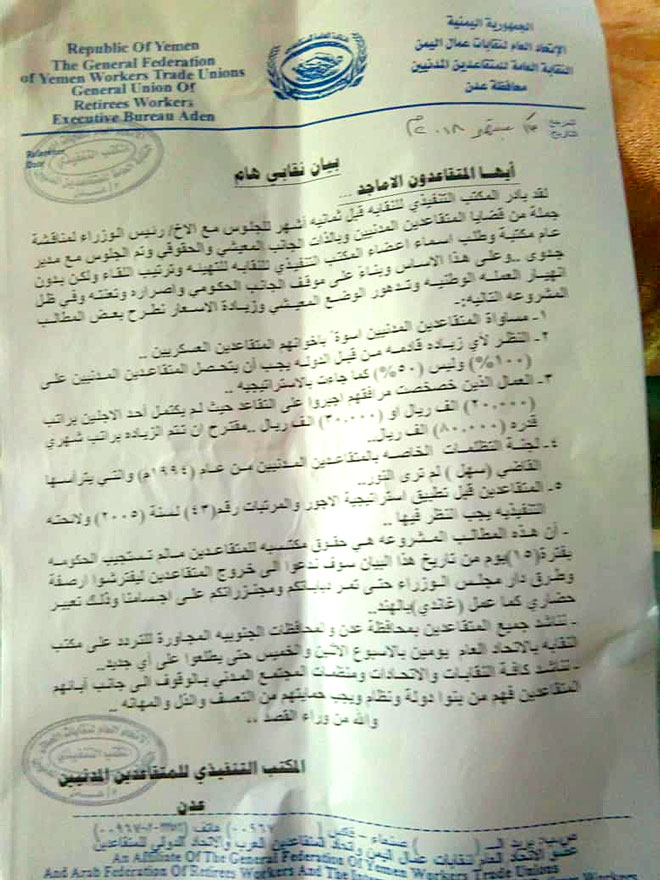 Republic Of Yemen
The General Federation
of Yemen Workers Trade Unions
General Union Of
Retirees Workers
Executive Bureau Aden
الجمهورية اليمنية
الإتحاد العام لنقابات عمال اليمن
النقابة العامة للمتقاعدين المدنيين
محافظة عدن
المرجع
التاريخ
سبتمبر ٢٠١٨م
بيان نقابي هام
أيها المتقاعدون الاماجد ...
لقد بادر المكتب التنفيذي للنقابه قبل ثمانيه أشهر للجلوس مع الاخ/ رئيس الوزراء لمناقشة
جملة من قضايا المتقاعدين المدنيين وبالذات الجانب المعيشي والحقوقي وتم الجلوس مع مدير
عام مكتبة وطلب اسماء اعضاء المكتب التنفيذي للنقابه للتهيئه وترتيب اللقاء ولكن بدون
جدوى .. وعلى هذا الاساس وبناءً على موقف الجانب الحكومي واصراره وتعنته وفي ظل
انهيار العمله الوطنيه وتدهور الوضع المعيشي وزيادة الاسعار نطرح بعض المطالب
المشروعه التاليه:-
١- مساواة المتقاعدين المدنيين اسوة باخوانهم المتقاعدين العسكريين ..
٢- النظر لأي زياده قادمه من قبل الدوله يجب أن يتحصل المتقاعدين المدنيين على
(١٠٠%) وليس (٥٠%) كما جاءت بالاستراتيجيه ..
٣- العمال الذين خصخصت مرافقهم اجبروا على التقاعد حيث لم يكتمل أحد الاجلين براتب
(٢٠,٠٠٠) الف ريال او (٣٠,٠٠٠) الف ريال .. مقترح ان تتم الزياده براتب شهري
قدره (٨٠,٠٠٠) الف ريال..
٤- لجنة التظلمات الخاصه بالمتقاعدين المدنيين من عام (١٩٩٤م) والتي يترأسها
القاضي (سهل) لم ترى النور..
٥- المتقاعدين قبل تطبيق استراتيجية الاجور والمرتبات رقم (٤٣) لسنة (٢٠٠٥) ولائحته
التنفيذيه يجب النظر فيها ..
- أن هذه المطالب المشروعه هي حقوق مكتسبه للمتقاعدين مالم تستجيب الحكومه
بفترة (١٥) يوم من تاريخ هذا البيان سوف ندعوا الى خروج المتقاعدين ليفترشوا ارصفة
وطرق دار مجلس الوزراء حتى تمر دباباتكم ومجنزراتكم على اجسامنا وذلك تعبير
حضاري كما عمل (غاندي) بالهند..
- نناشد جميع المتقاعدين بمحافظة عدن والمحافظات الجنوبيه المجاورة للتردد على مكتب
النقابه بالاتحاد العام يومين بالاسبوع الاثنين والخميس حتى يطلعوا على أي جديد..
- نناشد كافة النقابات والاتحادات ومنظمات المجتمع المدني بالوقوف الى جانب آبائهم
المتقاعدين فهم من بنوا دولة ونظام ويجب حمايتهم من التعسف والذل والمهانه ..
والله من وراء القصد ،،
المكتب التنفيذي للمتقاعدين المدنيين
عدن
صنعاء - فاكس
عضو الاتحاد العام لنقابات عمال اليمن واتحاد المتقاعدين العرب والاتحاد الدولي للمتقاعدين
An Affiliate Of The General Federation Of Yemen Workers Trade Unions
And Arab Federation Of Retirees Workers And The